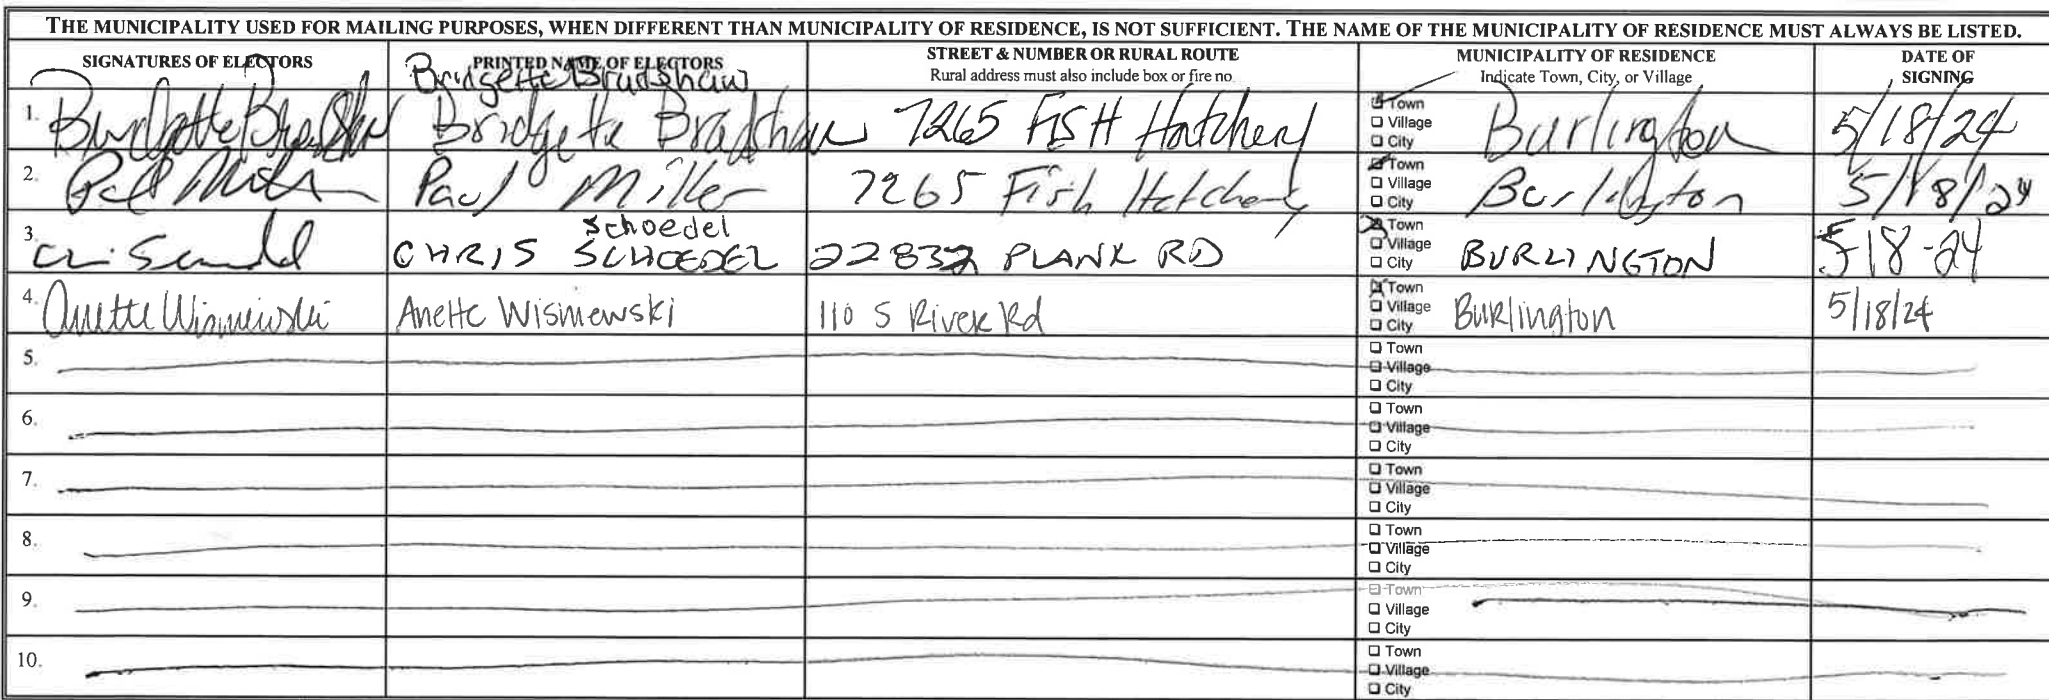 THE MUNICIPALITY USED FOR MAILING PURPOSES, WHEN DIFFERENT THAN MUNICIPALITY OF RESIDENCE, IS NOT SUFFICIENT. THE NAME OF THE MUNICIPALITY OF RESIDENCE MUST ALWAYS BE LISTED.
SIGNATURES OF ELECTORS PRINTED NAME OF ELECTORS STREET & NUMBER OR RURAL ROUTE MUNICIPALITY OF RESIDENCE DATE OF
Rural address must also include box or fire no. Indicate Town, City, or Village SIGNING
Bridgette Bradshaw
Town
1. Bridgette Bradshaw Bridgette Bradshaw 7265 FISH Hatchery Village Burlington 5/18/24
City
Town
2. Paul Miller Paul Miller 7265 Fish Hatchery Village Burlington 5/18/24
City
Schoedel Town
3. CHRIS SCHOEDEL 22832 PLANK RD Village BURLINGTON 5-18-24
City
Town
4. Anette Wisniewski Anette Wisniewski 110 S River Rd Village Burlington 5/18/24
City
Town
5. Village
City
Town
6. Village
City
Town
7. Village
City
Town
8. Village
City
Town
9. Village
City
Town
10. Village
City